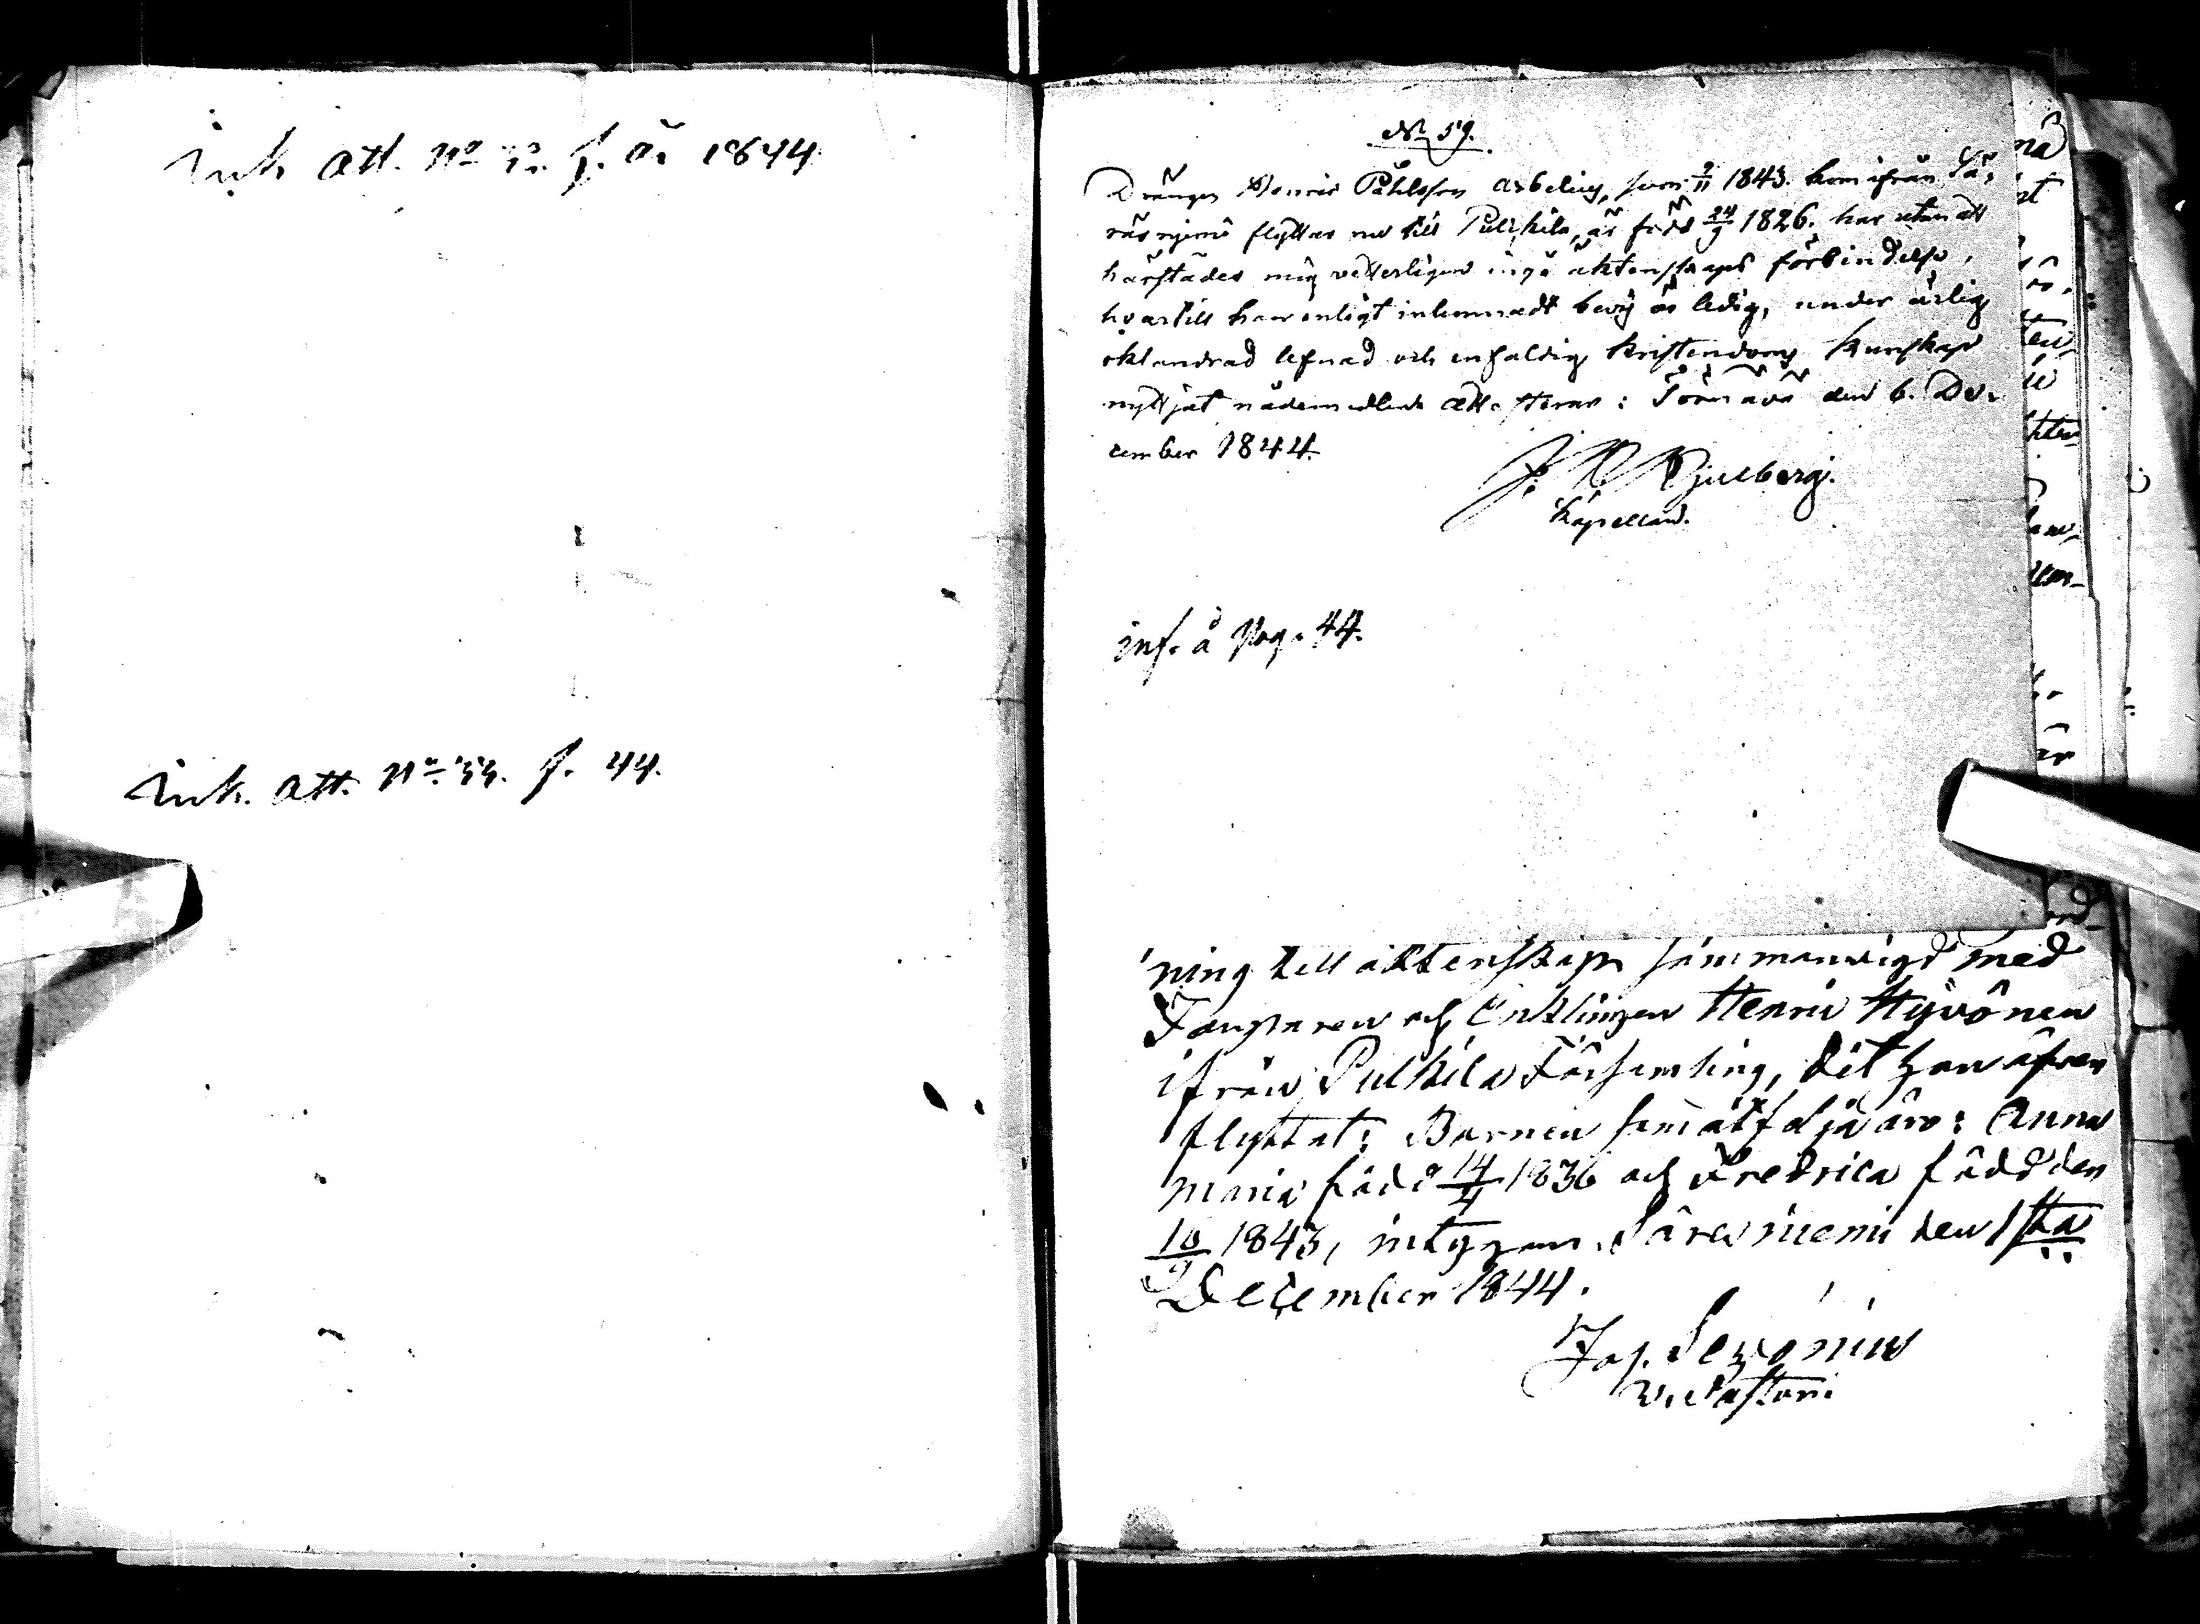 Ink att. No f. år 1844
Ink. att. No 53. f. 44.
No 59.
Drängen Henric Påhlsson Arbelius, som 9/11 1843. kom ifrån Sä-
räsniemi flyttar nu till Pulkkila, är född 24/9 1826. har utan att
härstädes mig vetterligen ingå äktenskaps förbindelse,
hvartill han enligt inlemnadt bevis är ledig, under ärlig
oklandrad lefnad och enfaldig kristendoms kunskap
nyttjat nådemedlen attesterar: Törnävä den 6. De-
cember 1844.
J. Hjulberg.
Kapellan.
inf. å pag. 44.
ning till äktenskap sammanvigd med
Torparen och Enklingen Henric Hyvönen
ifrån Pulkila Församling, dit hon äfven
flyttat; Barnen som åtfölja äro: Anna
Maria född 14/4 1836 och Fredrica född den
10/9 1843, intygar. Säresniemi den 1sta
December 1844.
Jos.
V. Pastor.